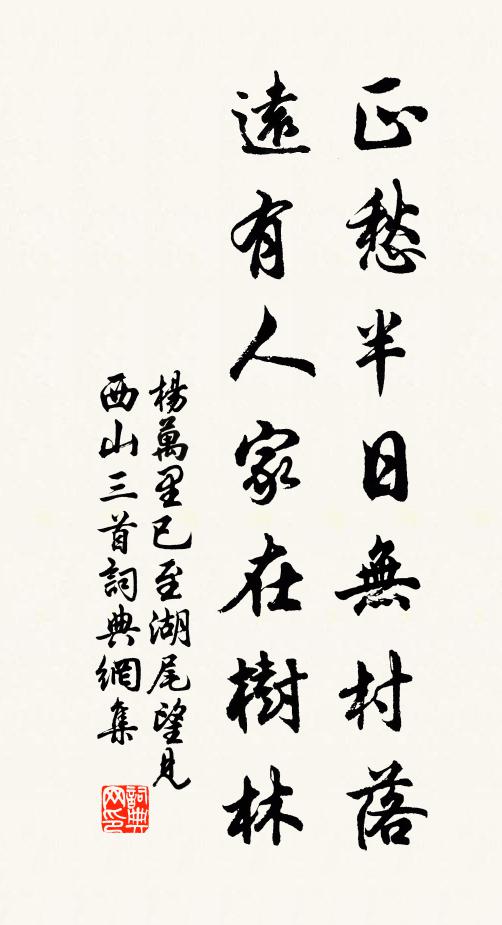 正愁半日無村落
遠有人家在樹林
楊萬里已至湖尾望見
西山三首詞典網集
詞典
网印